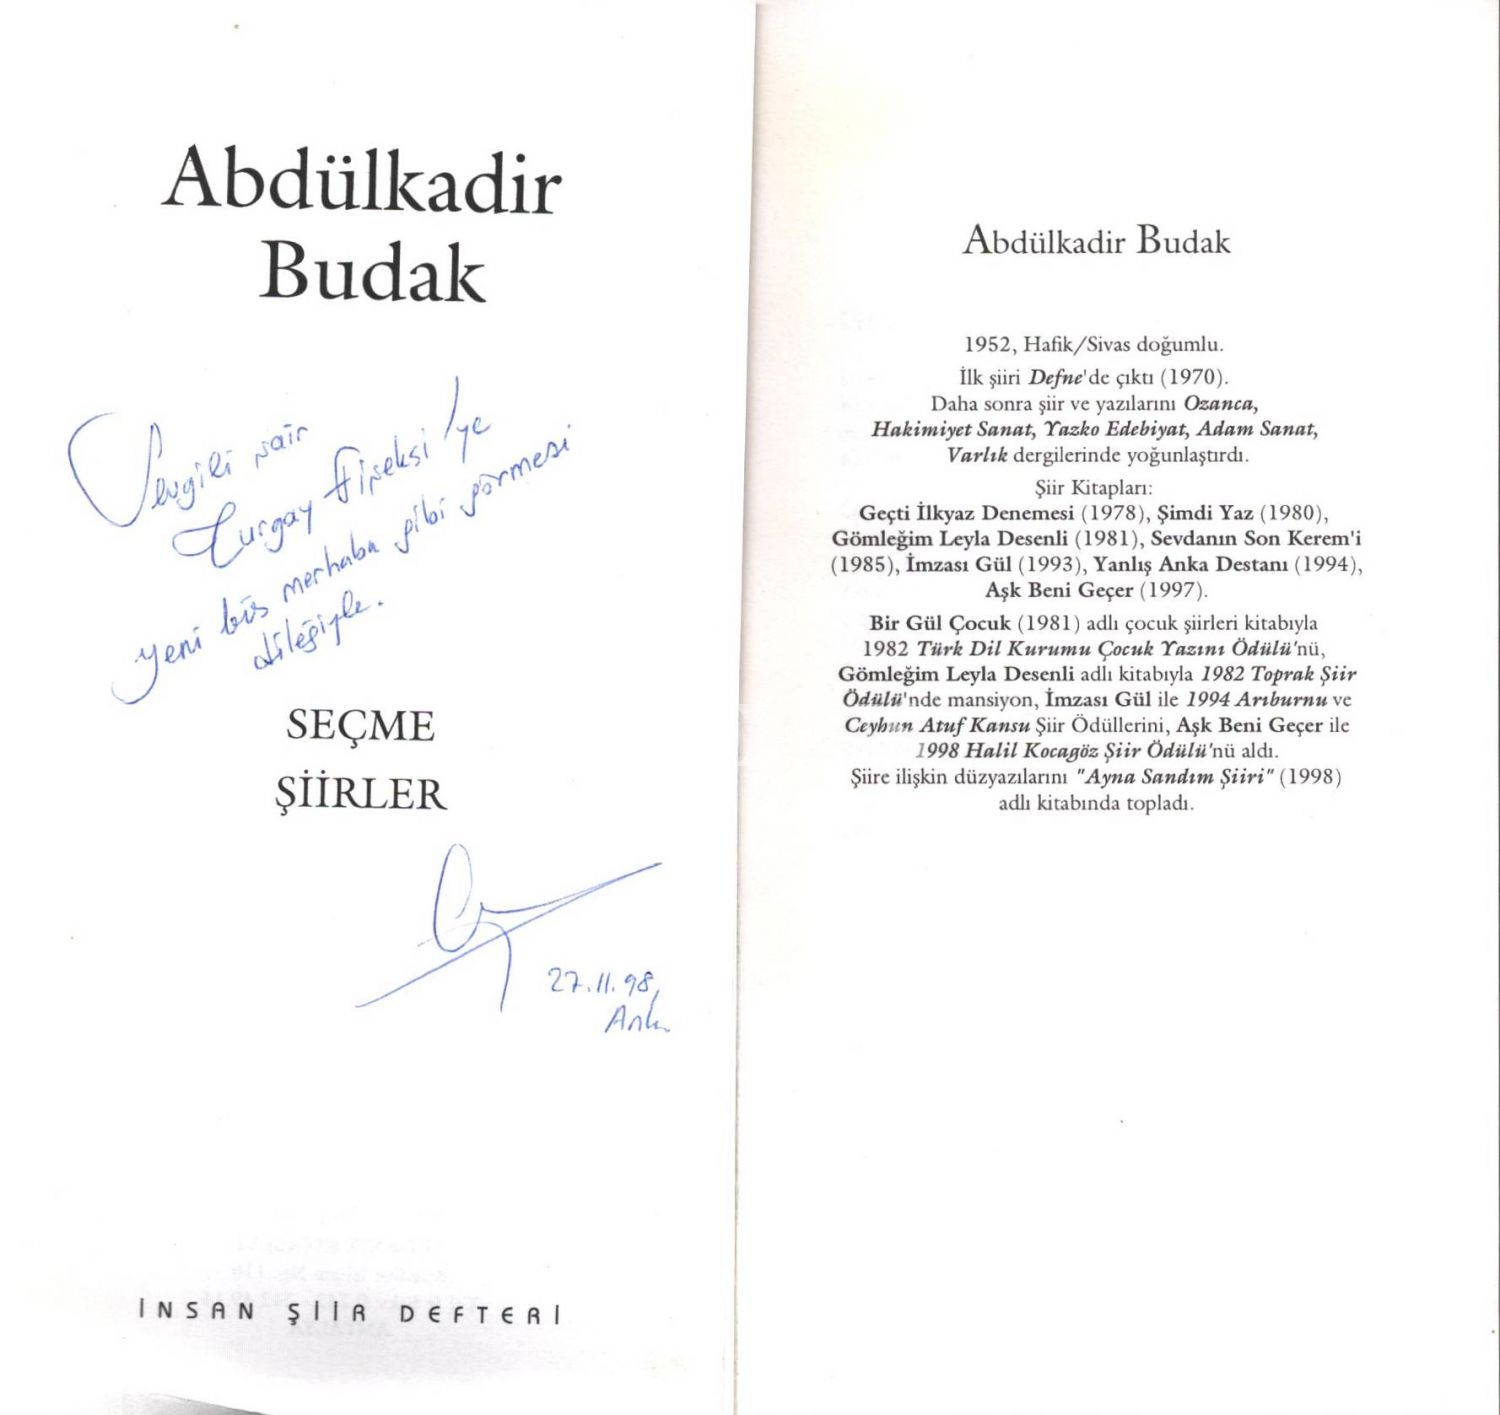 Abdülkadir
Budak
Sevgili şair
Turgay Fişekçi'ye
yeni bir merhaba gibi görmesi
dileğiyle.
SEÇME
ŞİİRLER
27.11.98,
Ank.
İNSAN ŞİİR DEFTERİ
Abdülkadir Budak
1952, Hafik/Sivas doğumlu.
İlk şiiri Defne'de çıktı (1970).
Daha sonra şiir ve yazılarını Ozanca,
Hakimiyet Sanat, Yazko Edebiyat, Adam Sanat,
Varlık dergilerinde yoğunlaştırdı.
Şiir Kitapları:
Geçti İlkyaz Denemesi (1978), Şimdi Yaz (1980),
Gömleğim Leyla Desenli (1981), Sevdanın Son Kerem'i
(1985), İmzası Gül (1993), Yanlış Anka Destanı (1994),
Aşk Beni Geçer (1997).
Bir Gül Çocuk (1981) adlı çocuk şiirleri kitabıyla
1982 Türk Dil Kurumu Çocuk Yazını Ödülü'nü,
Gömleğim Leyla Desenli adlı kitabıyla 1982 Toprak Şiir
Ödülü'nde mansiyon, İmzası Gül ile 1994 Arıburnu ve
Ceyhun Atuf Kansu Şiir Ödüllerini, Aşk Beni Geçer ile
1998 Halil Kocagöz Şiir Ödülü'nü aldı.
Şiire ilişkin düzyazılarını "Ayna Sandım Şiiri" (1998)
adlı kitabında topladı.